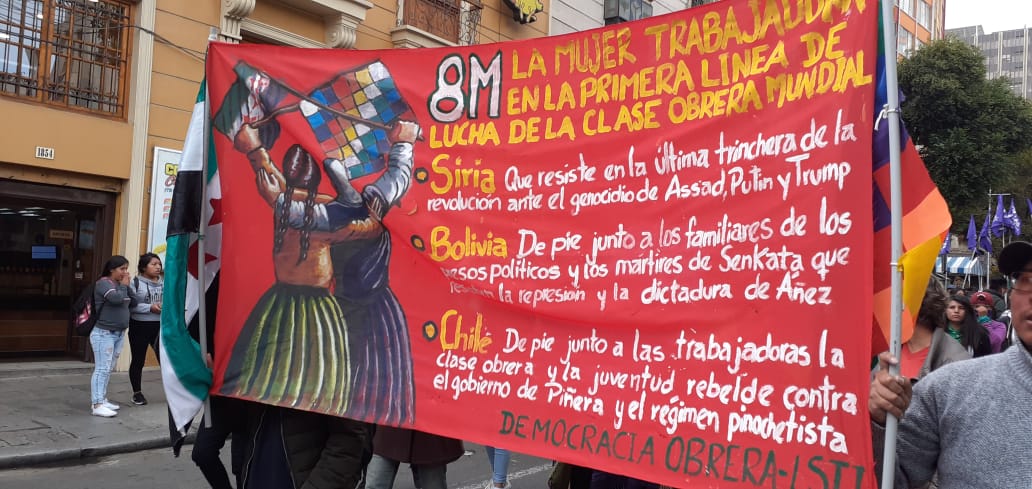 1854
8M LA MUJER TRABAJADORA
EN LA PRIMERA LINEA DE
LUCHA DE LA CLASE OBRERA MUNDIAL
Siria Que resiste en la última trinchera de la
revolución ante el genocidio de Assad, Putin y Trump
Bolivia De pie junto a los familiares de los
presos políticos y los mártires de Senkata que
la represión y la dictadura de Áñez
Chile De pie junto a las trabajadoras la
clase obrera y la juventud rebelde contra
el gobierno de Piñera y el régimen pinochetista
DEMOCRACIA OBRERA-LSTI